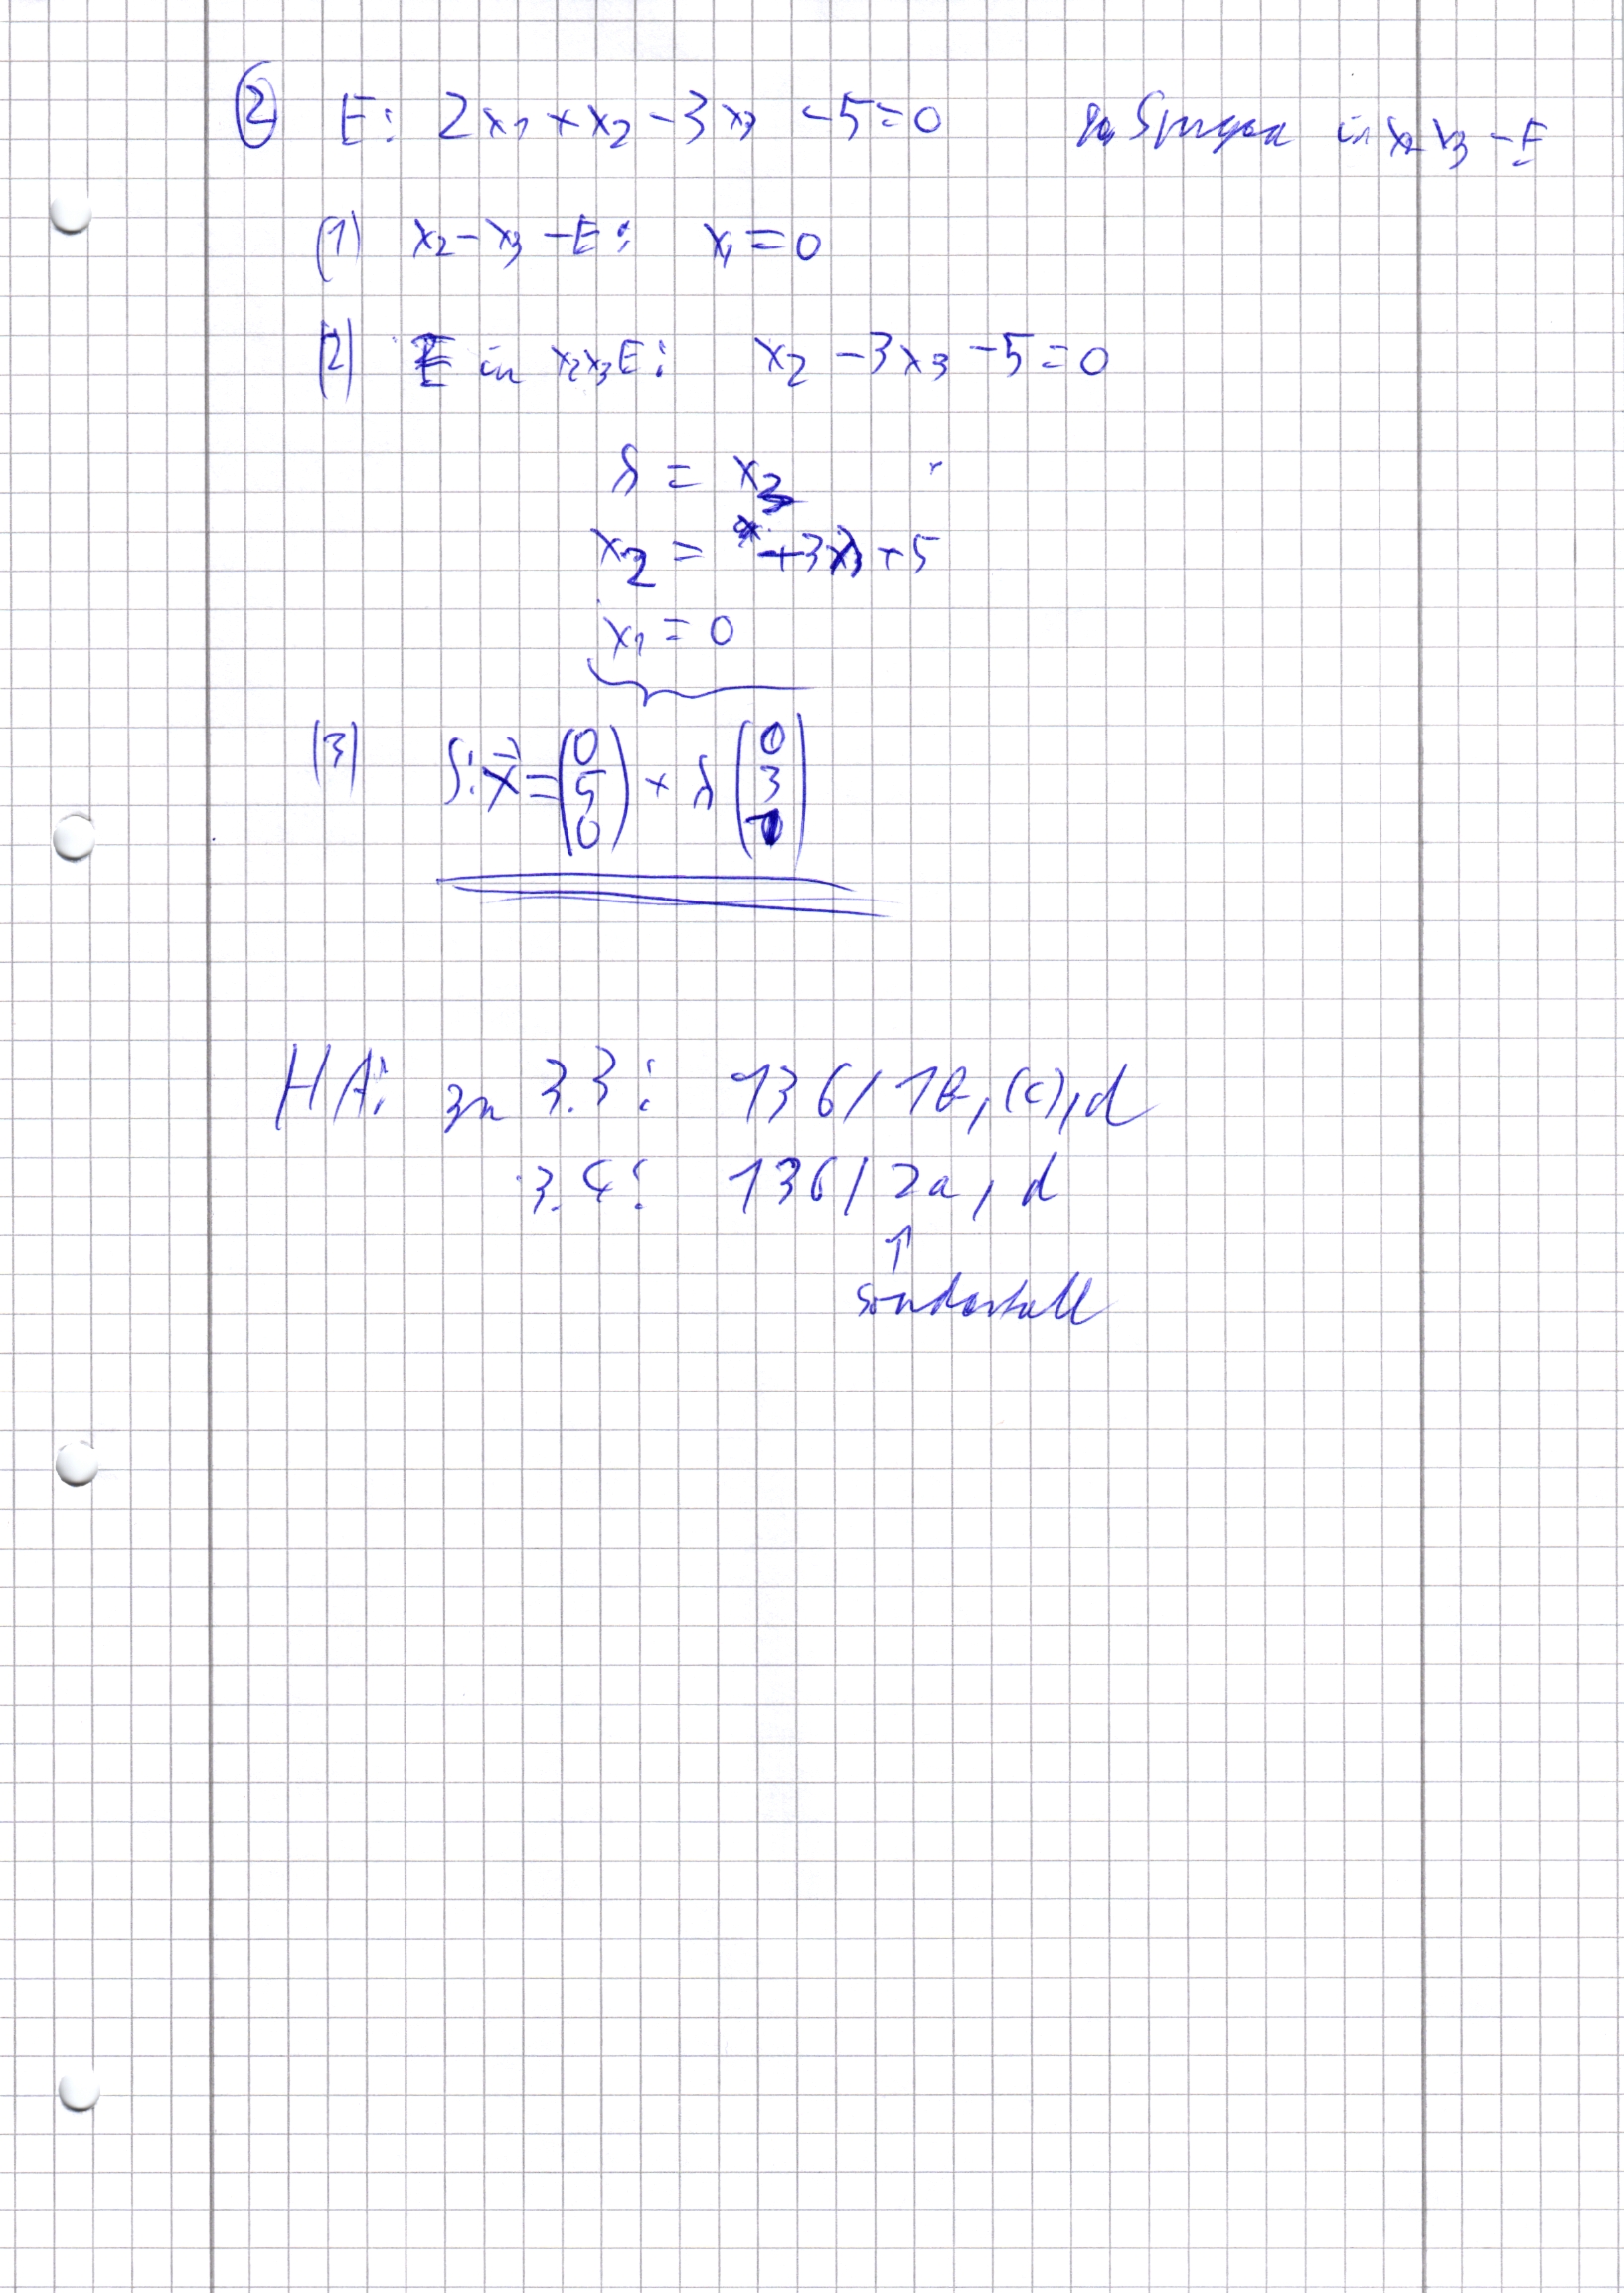 ② E: 2x₁ + x₂ - 3x₃ - 5 = 0 in x₂x₃-E
(1) x₂-x₃-E: x₁ = 0
(2) E in x₂x₃E: x₂ - 3x₃ - 5 = 0
λ = x₃
x₂ = +3λ + 5
x₁ = 0
(3) S: x⃗ = (0 5 0) + λ (0 3 1)
HA: zu 3.3: 136/1b, (c), d
3.4: 136/2a, d
↑
Sonderfall